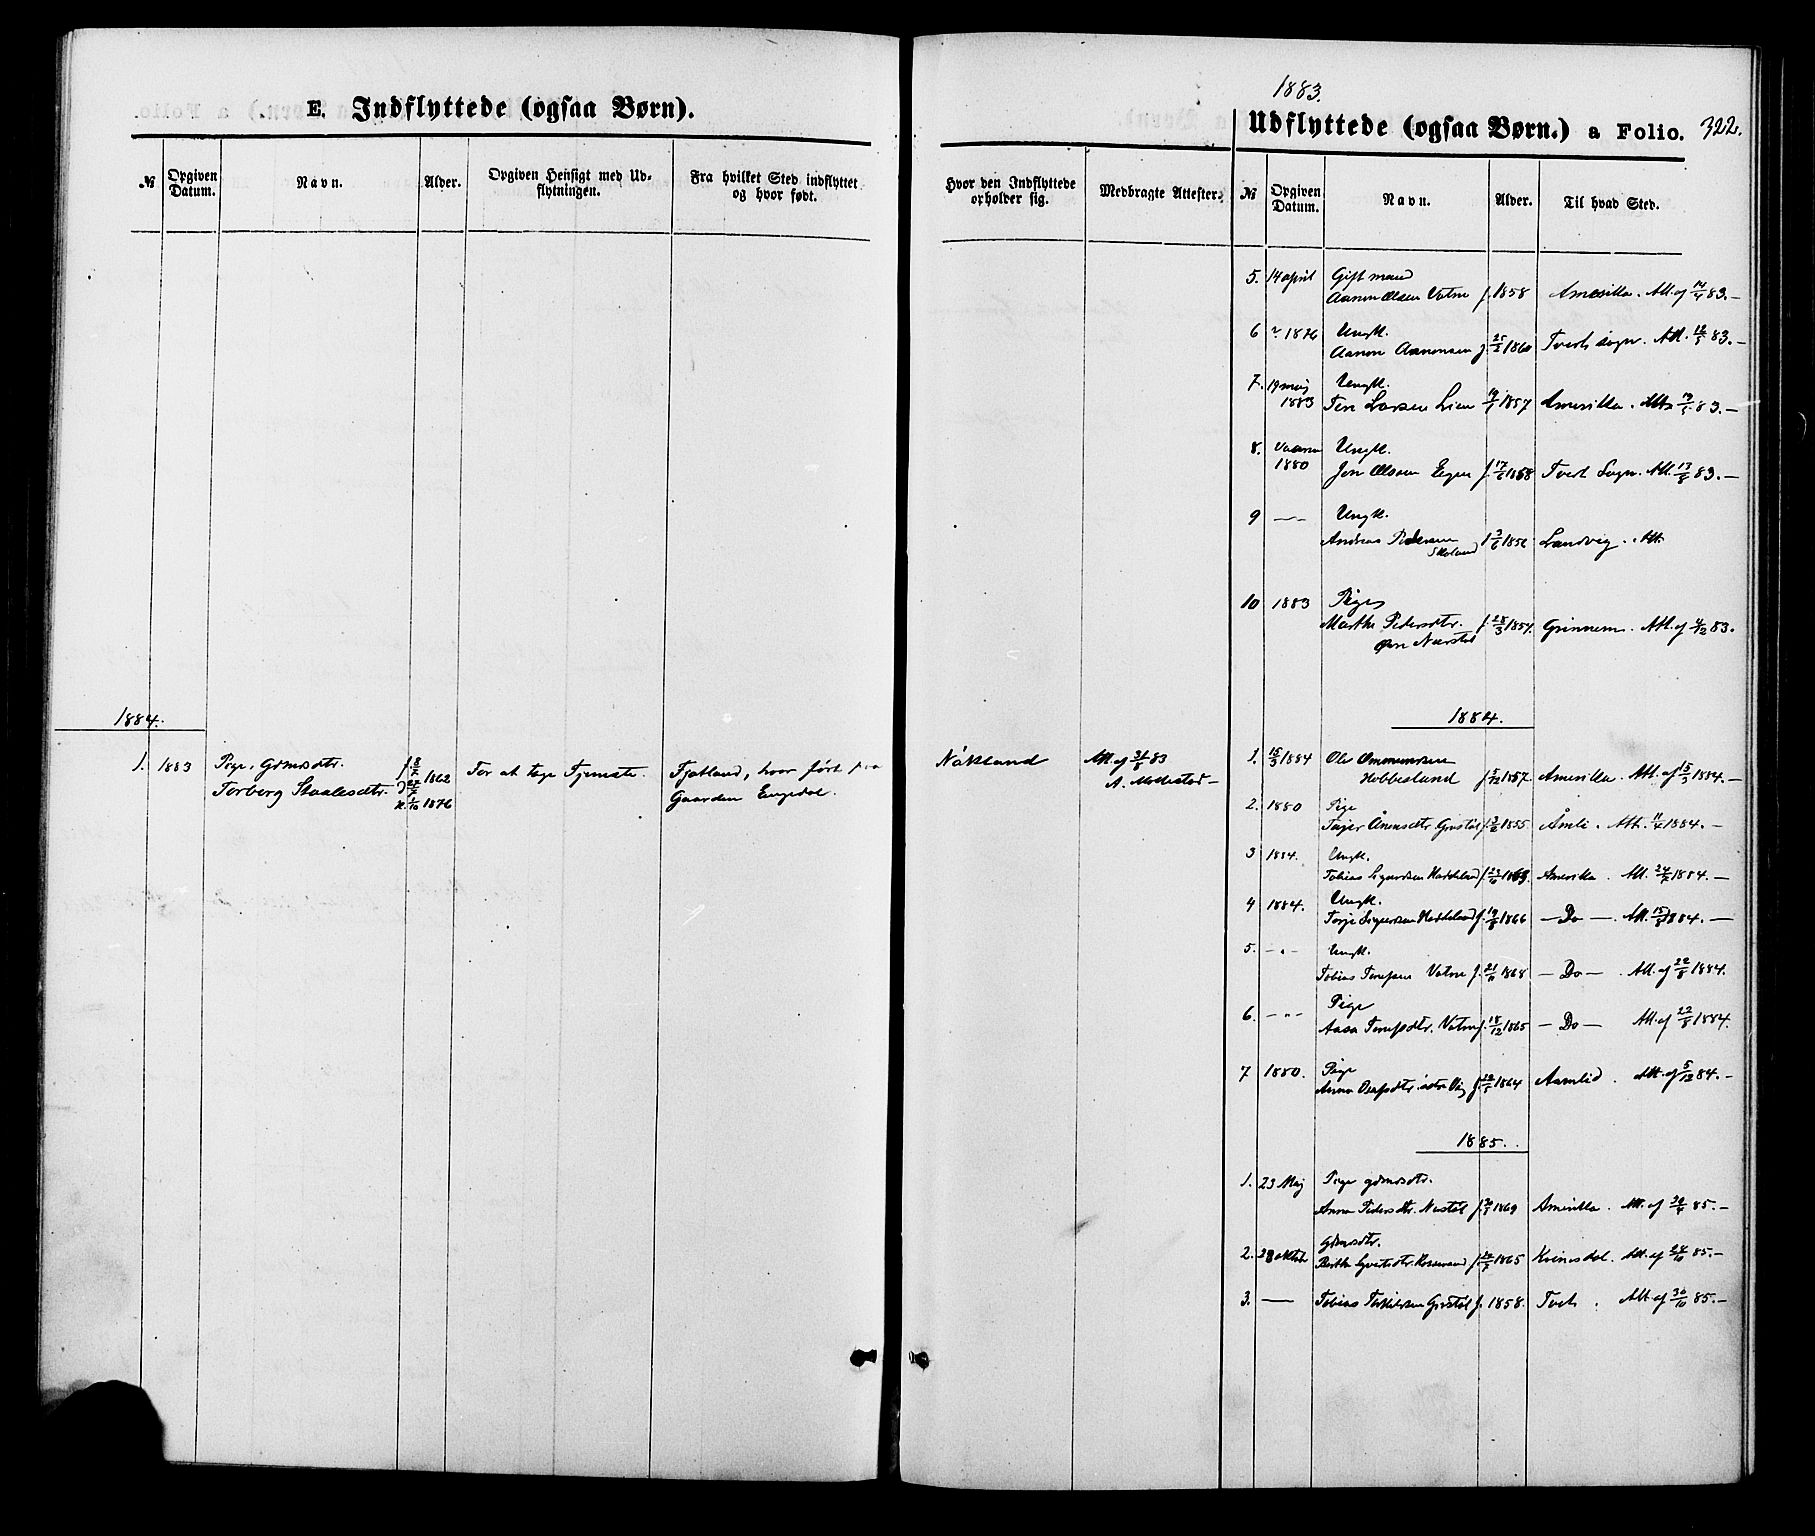 E. Indflyttede (ogsaa Børn).
№ Opgiven Datum. Navn. Alder. Opgiven Hensigt med Udflytningen. Fra hvilket Sted indflyttet og hvor født.
1884.
1. 1883 Pige, Grmdsdtr. f. 8/7 1862
Torborg Staalesdtr. 1/10 1876
For at tage Tjeneste. Fjotland, hvor født paa
Gaarden Eugedal.
1883.
Udflyttede (ogsaa Børn.) a Folio. 322.
Hvor den Indflyttede opholder sig. Medbragte Attester. № Opgiven Datum. Navn. Alder. Til hvad Sted.
Nökland Att. of 31/5 83
A.
5. 14 april Gift mand
Aanen Olsen Vatne f. 1858 Amerika. Att. af 14/4 83.—
6 1876 Ungk.
Aanen Aanensen f. 25/2 1860 Tveds sogn. Att. 12/5 83.—
7. 19 maj 1883 Ungk.
Ten Larsen Lien 1857 Amerika. Att. 19/5 83.—
8. Vaaren 1880 Ungk.
Jon Olsen Egen f. 17/6 1858 Tved Sogn. Att. 13/8 83.—
9 —〃— Ungk.
Andreas Pedersen Skeland f. 3/6 1856 Landvig. Att.
10 1883 Pige
Marthe Pedersdtr. f. 28/3 1854. Grinnem. Att. af 4/12 83.
Øvre Nærstøl
1884.
1. 15/3 1884 Ole Ommundsen
Hobbesland f. 5/12 1857. Amerika. Att. af 15/3 1884.—
2. 1880 Pige
Tarjer Ånensdtr Grostøl f. 3/6 1855 Åmli. Att. 11/4 1884.—
3 1884. Ungk.
Tobias Sigurdsen Haddeland f. 23/10 1863. Amerika. Att. 24/7 1884.—
4 1884. Ungk.
Torje Sigurdsen Haddeland f. 19/8 1866 —Do—. Att. 15/8 1884.—
5. —〃— Ungk.
Tobias Vatne f. 21/11 1868 —Do—. Att. af 22/8 1884.
6. —〃— Pige
Aasa Vatne f. 18/12 1865 —Do— Att. af 22/8 1884.
7 1880. Pige
Anna 1864 Aamlid. Att. af 5/12 84.—
1885.
1. 23 Maj Pige grmdsdtr.
Anna Pedersdtr. Næstøl f. 1869 Amerika. Att. af 85.—
2. 28 oktober grmdsdtr.
Berthe Syvertsdtr. f. 1865 Kvinesdal. Att. af 24/10 85.—
3. —— Tobias Torkildsen Grostøl f. 1858. Tveds. Att af 30/10 85.—